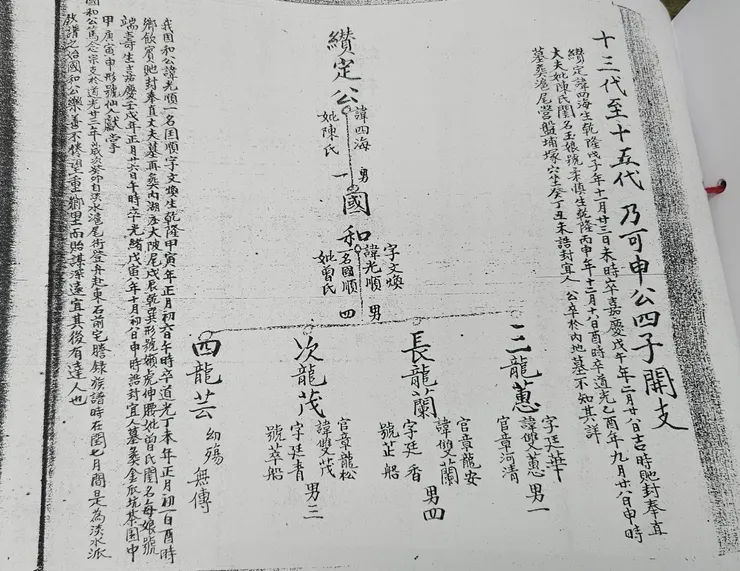 十三代至十五代 乃可申公四子開支
纘定諱四海生乾隆戊子年十二月廿三日未時卒嘉慶戊午年二月廿八日吉時貤封奉直
大夫妣陳氏閨名玉娘號柔慎生乾隆丙申年十二月十八日酉時卒道光乙酉年九月廿八日申時
墓葬滬尾營盤埔塚穴坐癸丁丑未誥封宜人 公卒於內地墓不知其詳
纘定公
諱四海 男一
妣陳氏
國和
字文煥
諱光順 男四
名國順
妣曾氏
三龍蕙
字廷華
諱雙蕙 男一
官章河清
長龍蘭
官章龍安
諱雙蘭 男四
字廷香
號芷船
次龍茂
官章龍松
諱雙茂 男三
字廷青
號莘船
四龍芸
幼殤無傳
我國和公諱光順一名國順字文煥生乾隆甲寅年正月初六日午時卒道光丁未年正月初一日酉時
鄉飲賓貤封奉直大夫墓再葬內湖庄大陂尾戌辰乾巽形號嬾虎伸腰妣曾氏閨名每娘號
端壽生嘉慶壬戌年正月廿六日午時卒光緒戊寅年十月初八日申時誥封宜人墓葬金瓜坑茶園中
甲庚寅申形號仙人獻掌
國和公篤念宗支於道光廿三年歲次癸卯自淡水滬尾街登舟赴東石前宅謄錄族譜時在閏七月間是為淡水派
敘譜之始國和公樂善不倦望重鄉里而貽謀深遠宜其後有達人也